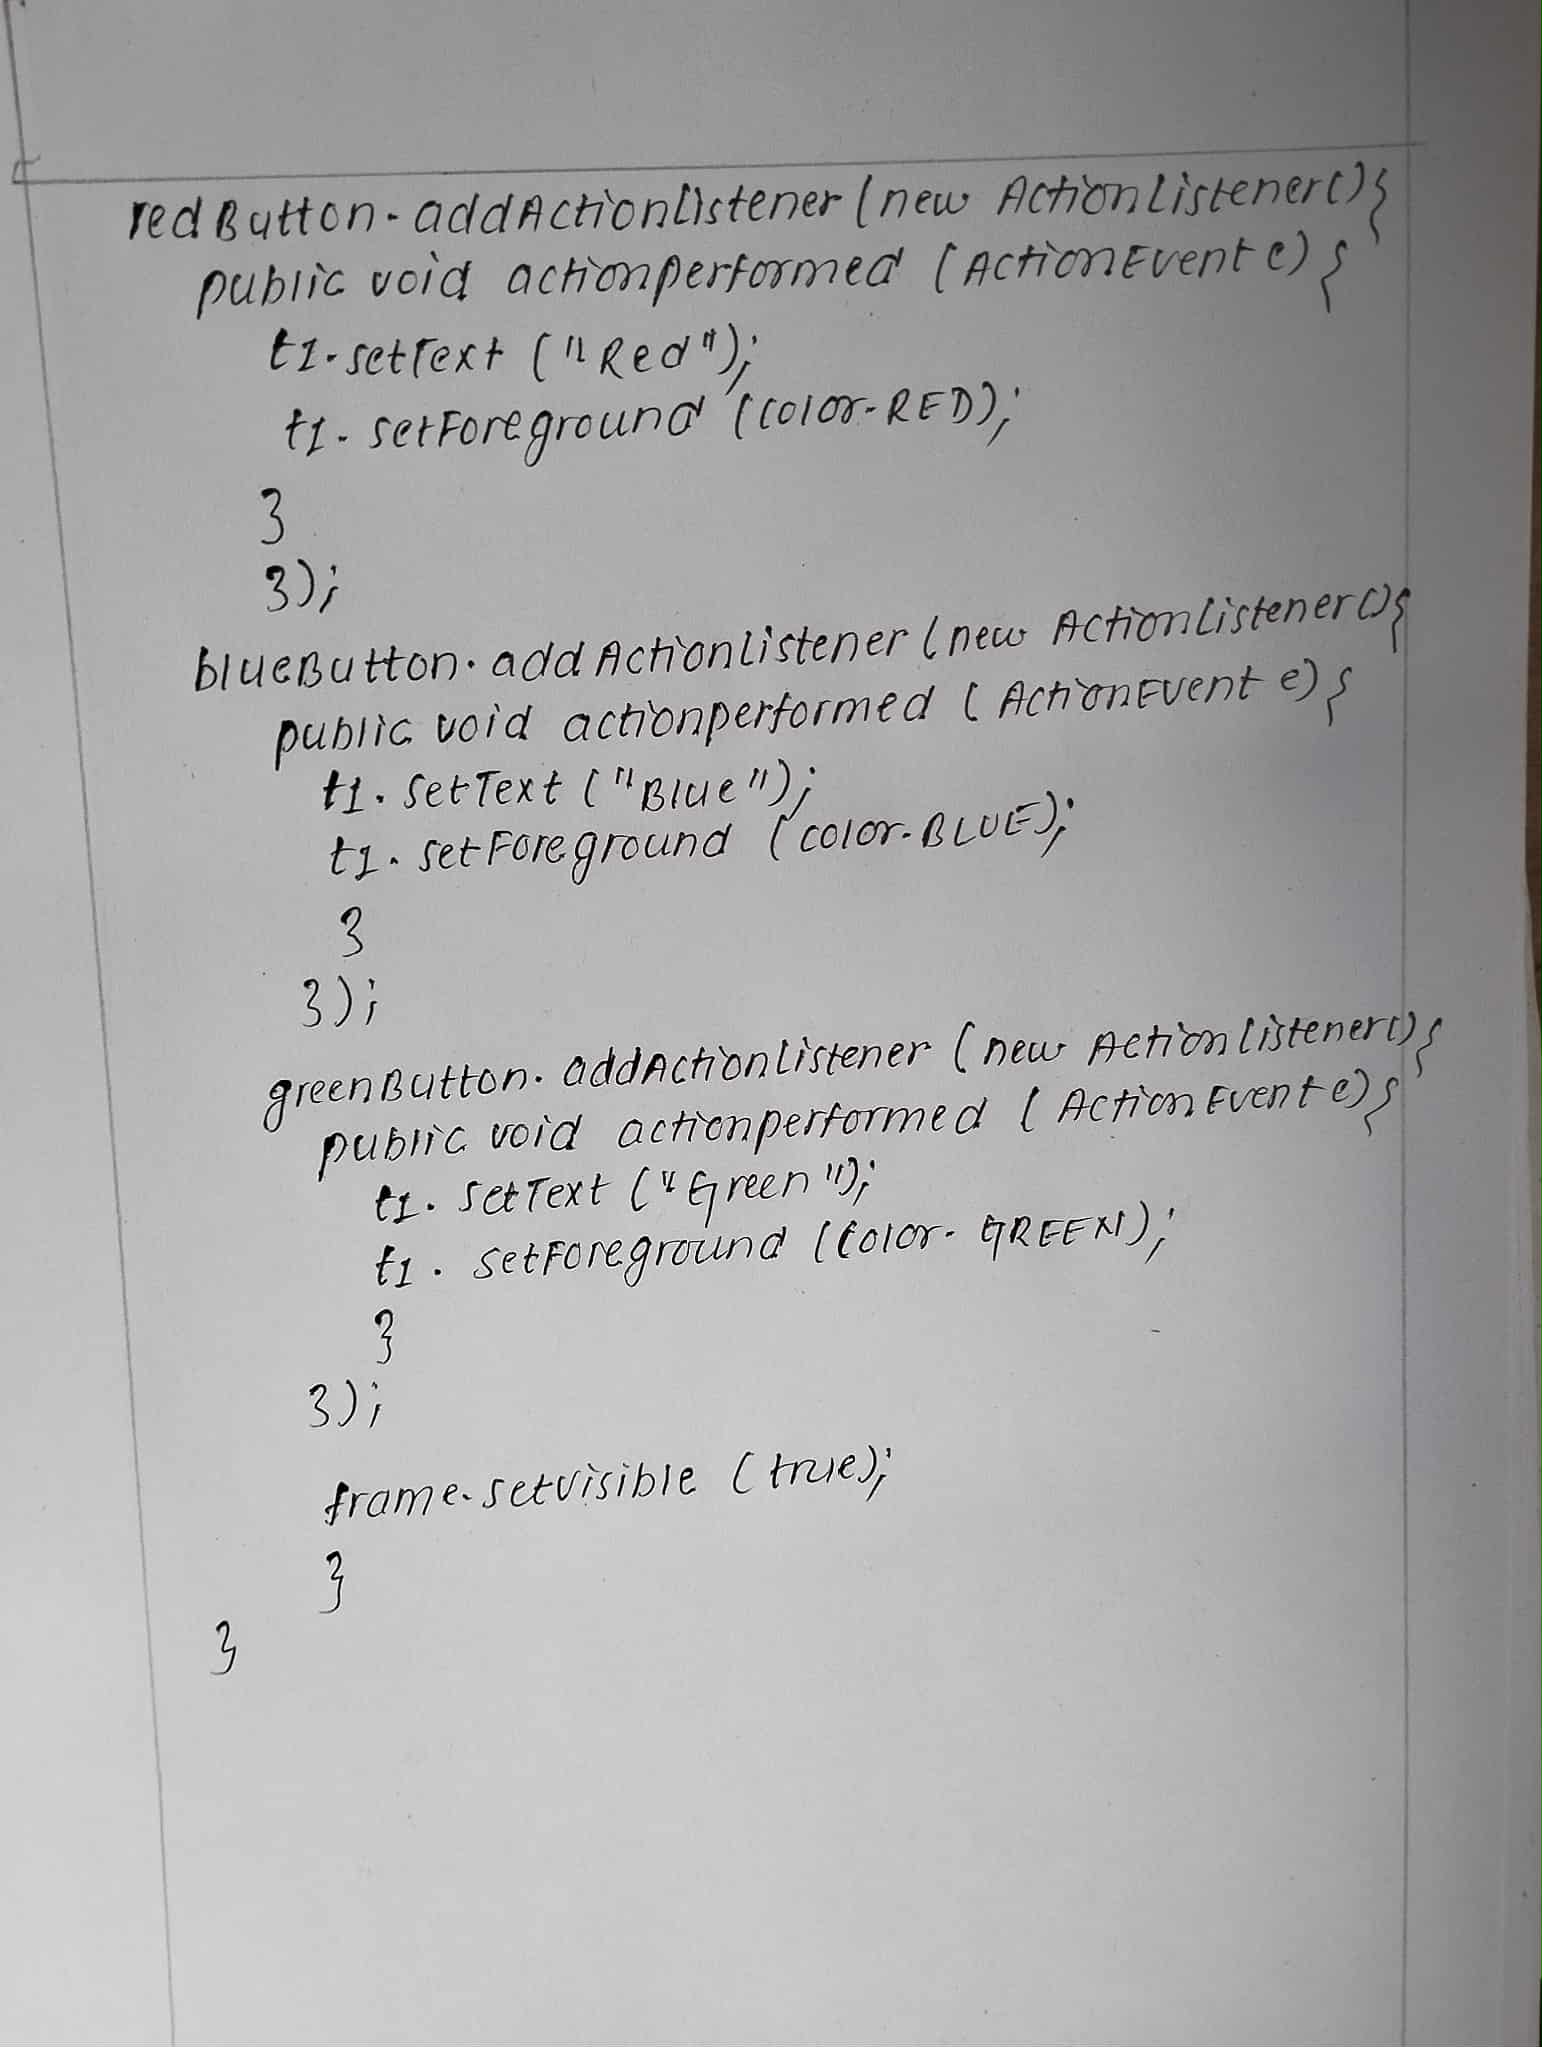 redButton.addActionlistener(new ActionListener(){
public void actionperformed (ActionEvent e) {
t1.setText ("Red");
t1.setForeground (color.RED);
}
});
blueButton.addActionlistener(new ActionListener(){
public void actionperformed (ActionEvent e) {
t1.setText ("Blue");
t1.setForeground (color.BLUE);
}
});
greenButton.addActionlistener (new Actionlistener(){
public void actionperformed (ActionEvent e) {
t1.setText ("Green");
t1.setForeground (Color.GREEN);
}
});
frame.setvisible (true);
}
}